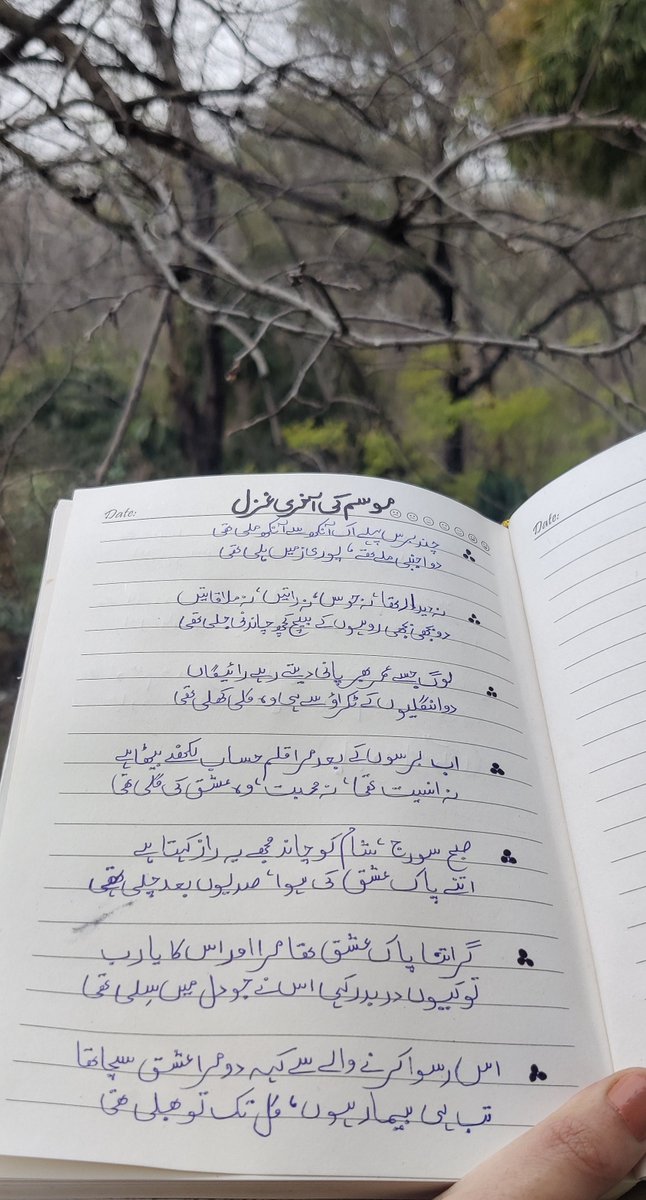 Date:
موسم کی آخری غزل
Date:
چند برس پہلے اک آنکھ سے آنکھ ملی تھی
دو اجنبی ملے تھے، پوری زمیں ہلی تھی
نہ دیدار تھا، نہ جوس، نہ راتیں، نہ ملاقاتیں
دو بجھی بجھی روحوں کے بیچ کچھ چاندنی جلی تھی
لوگ جسے عمر بھر پانی دیتے رہے رائیگاں
دو انگلیوں کے ٹکراؤ سے ہی وہ کلی کھلی تھی
اب برسوں کے بعد مرا قلم حساب لکھنے بیٹھا ہے
نہ انسیت تھی، نہ محبت، وہ عشق کی گلی تھی
صبح سورج، شام کو چاند مجھے یہ راز کہتا ہے
اتنے پاک عشق کی ہوا، صدیوں بعد چلی تھی
گر اتنا پاک عشق تھا مرا اور اس کا یا رب
تو کیوں در بدر کہی اس نے جو دل میں سِلی تھی
اس رسوا کرنے والے سے کہہ دو مرا عشق سچا تھا
تب ہی بیمار ہوں، کل تک تو بھلی تھی